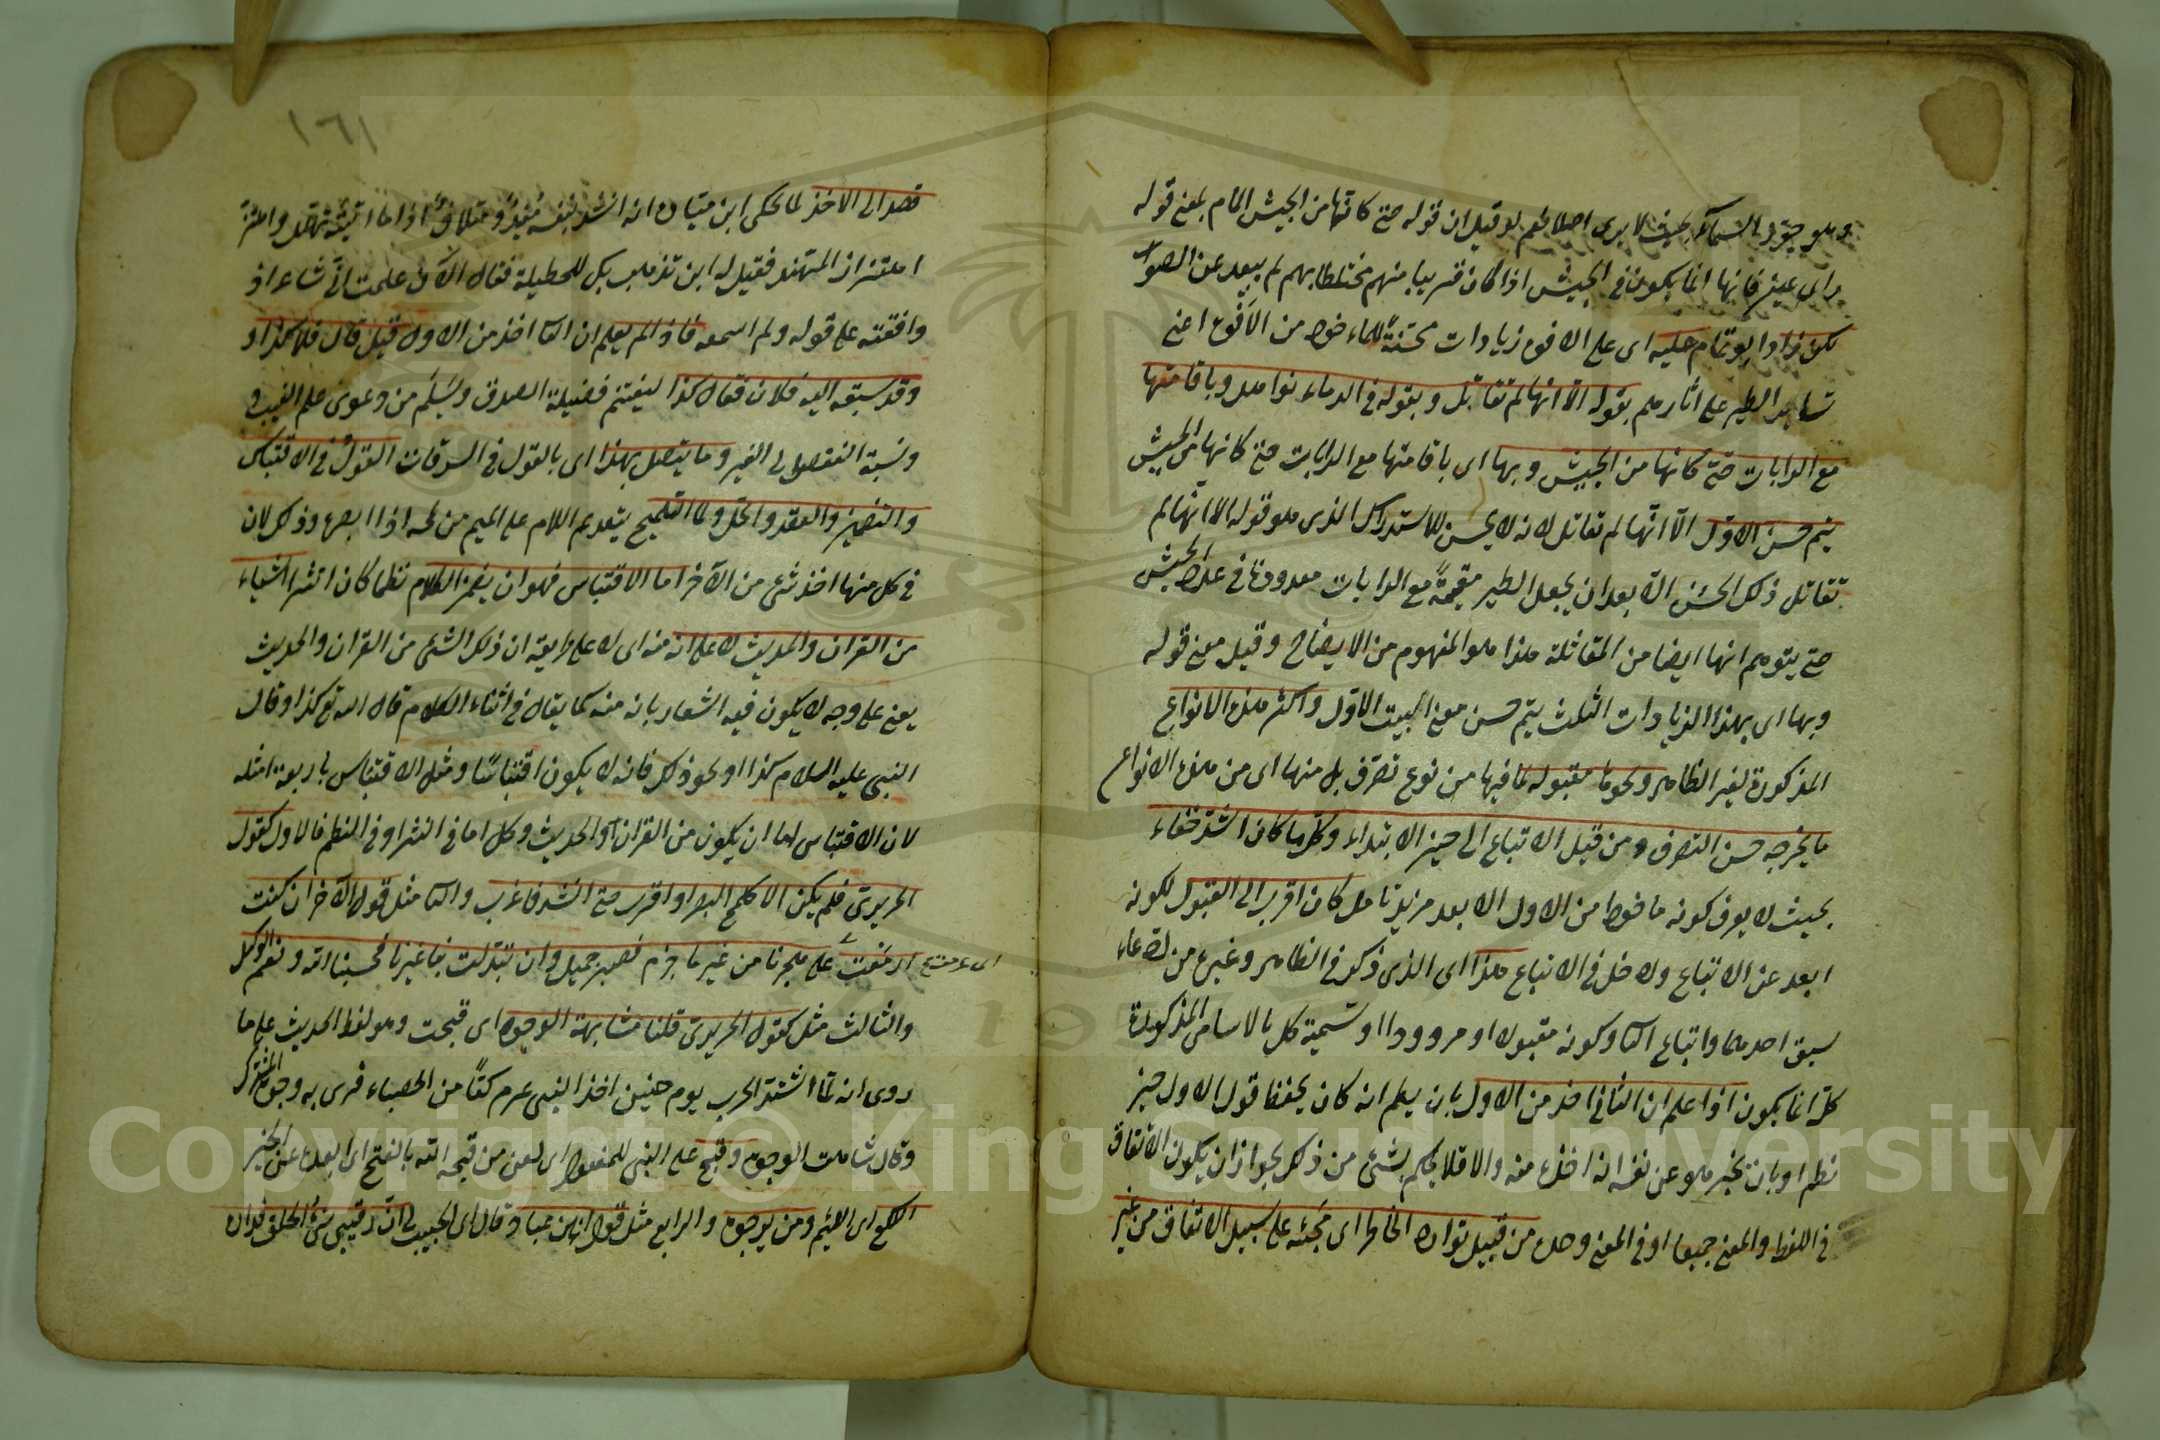 وهو جوّد السماء بحيث لا يرى اصلا نعم لو قيل ان قوله حتى كانها من الجيش المام بمعنى قوله
راى عين فانها انما يكون في الجيش اذا كان قريبا منهم مختلطا بهم لم يبعد عن الصواب
لكن زاد ابو تمام عليه اى على الافوه زيادات محسّنة للماخوذ من الافوه اعنى
تساير الطير على اثارهم بقوله الا انها لم تقاتل و بقوله في الدماء نواهل وباقامتها
مع الرايات حتى كانها من الجيش وبها اى باقامتها مع الرايات حتى كانها من الجيش
يتم حسن الاول الا انها لم تقاتل لانه لا يحسن الاستدراك الذى هو قوله الا انها لم
تقاتل ذلك الحسن الا بعد ان يجعل الطير مقيمة مع الرايات معدودة في عداد الجيش
حتى يتوهم انها ايضا من المقاتلة هذا هو المفهوم من الايضاح وقيل معنى قوله
وبها اى بهذا الزيادات الثلث يتم حسن معنى البيت الاول واكثر هذه الانواع
المذكورة لغير الظاهر ونحوها مقبولة لما فيها من نوع تصرف بل منها اى من هذه الانواع
ما يخرجه حسن التصرف من قبيل الاتباع الى حيز الابتداء وكل ما كان اشد خفاء
بحيث لا يعرف كونه ماخوذا من الاول الا بعد مزيد تامل كان اقرب الى القبول لكونه
ابعد عن الاتباع وادخل في الابتداع هذا اى الذى ذكر في الظاهر وغيره من ادعاء
سبق احدهما واتباع الثا وكونه مقبولا او مردودا او تسمية كل بالاسامى المذكورة
كله انما يكون اذا علم ان الثانى اخذ من الاول بان يعلم انه كان يحفظ قول الاول حين
نظم او بان يخبر هو عن نفسه انه اخذه منه والا فلا يحكم بشئ من ذلك لجواز ان يكون الاتفاق
في اللفظ والمعنى جميعا او في المعنى وحده من قبيل توارد الخاطر اى مجيئه على سبيل الاتفاق من غير
١٦١
قصد الى الاخذ لما يحكى ابن ميادة انه انشد لنفسه مفيد ومتلاف اذا ما اتيته تهلل واهتز
اهتزاز المهند فقيل له اين تذهب بك للحطيئة فقال الآن علمت انى شاعر اذ
وافقته على قوله ولم اسمعه فاذا لم يعلم ان الثا اخذ من الاول قيل قال فلان كذا و
وقد سبقه اليه فلان فقال كذا ليغتنم فضيلة الصدق ويسلم من دعوى علم الغيب و
ونسبة النقص الى الغير ومما يتصل بهذا اى بالقول في السرقات القول في الاقتباس
والتضمين والعقد والحل والتلميح بتقديم اللام على الميم من لمحه اذا ابصره وذلك لان
في كل منها اخذ شئ من الآخر اما الاقتباس فهو ان يضمن الكلام نظما كان او نثرا شيئا
من القران والحديث لا على انه منه اى لا على طريقة ان ذلك الشئ من القران والحديث
يعنى على وجه لا يكون فيه اشعار بانه منه كما يقال في اثناء الكلام قال الله تع كذا وقال
النبى عليه السلام كذا او نحو ذلك فانه لا يكون اقتباسا ومثل الاقتباس باربعة امثلة
لان الاقتباس اما ان يكون من القران او الحديث وكل اما في النثر او في النظم فالاول كقول
الحريرى فلم يكن الا كلمح البصر او اقرب حتى انشد فاغرب والثا مثل قول الآخر ان كنت
ازمعت على هجرنا من غير ما جرم فصبر جميل وان تبدلت بنا غيرنا فحسبنا الله ونعم الوكيل
والثالث مثل كقول الحريرى قلنا شاهت الوجوه اى قبحت وهو لفظ الحديث على ما
روى انه لما اشتد الحرب يوم حنين اخذ النبى عم كفا من الحصباء فرمى به وجوه المشركين
وقال شاهت الوجوه وقبح على المبنى للمفعول اى لعن من قبحه الله بالفتح اى ابعده عن الخير
اللكع اى اللئيم ومن يرجوه والرابع مثل قول ابن عباد قال اى الحبيب لى ان رقيبى سئ الخلق فداره